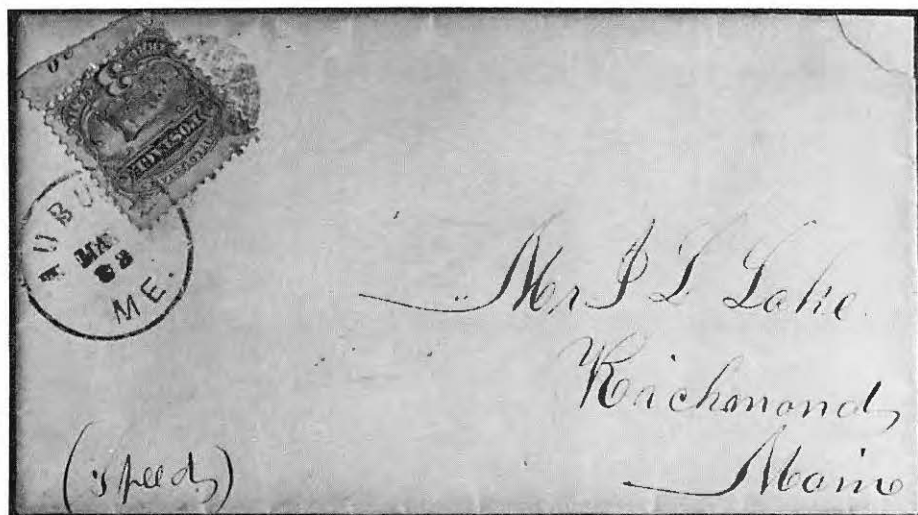 3
AUBU
MAR
ME.
Mr J L Lake
Richmond,
Maine
(speedy)